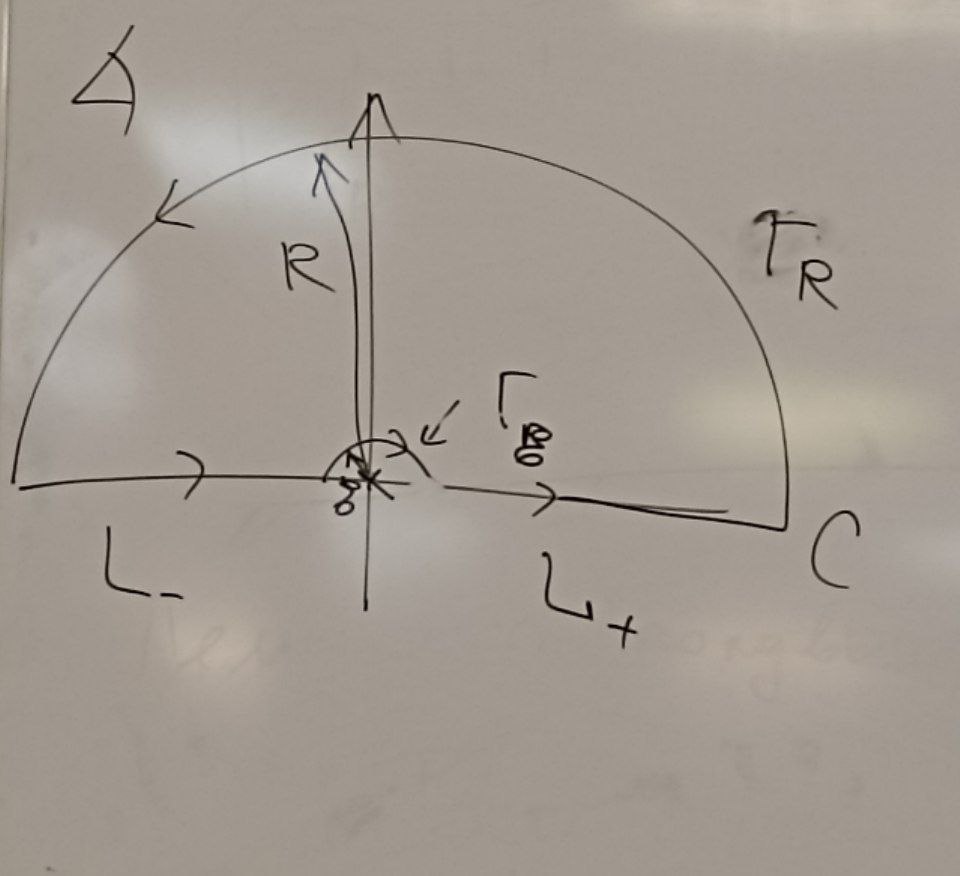 R
Γ_R
Γ_δ
δ
L_-
L_+
C